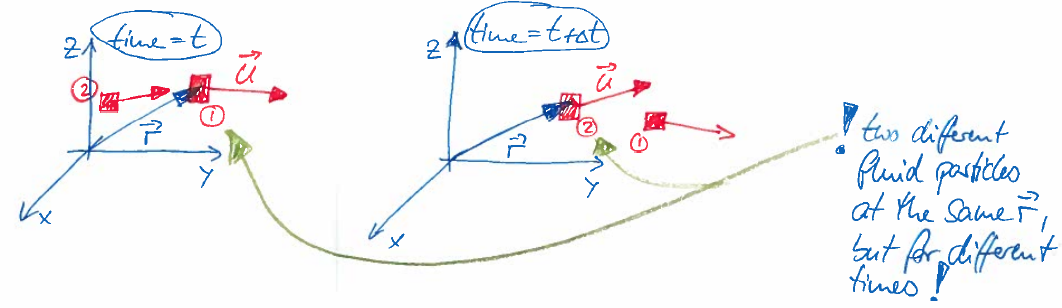 time = t
Z
②
①
u⃗
r⃗
Y
X
time = t+Δt
Z
u⃗
②
①
r⃗
Y
X
! two different
fluid particles
at the same r⃗,
but for different
times!